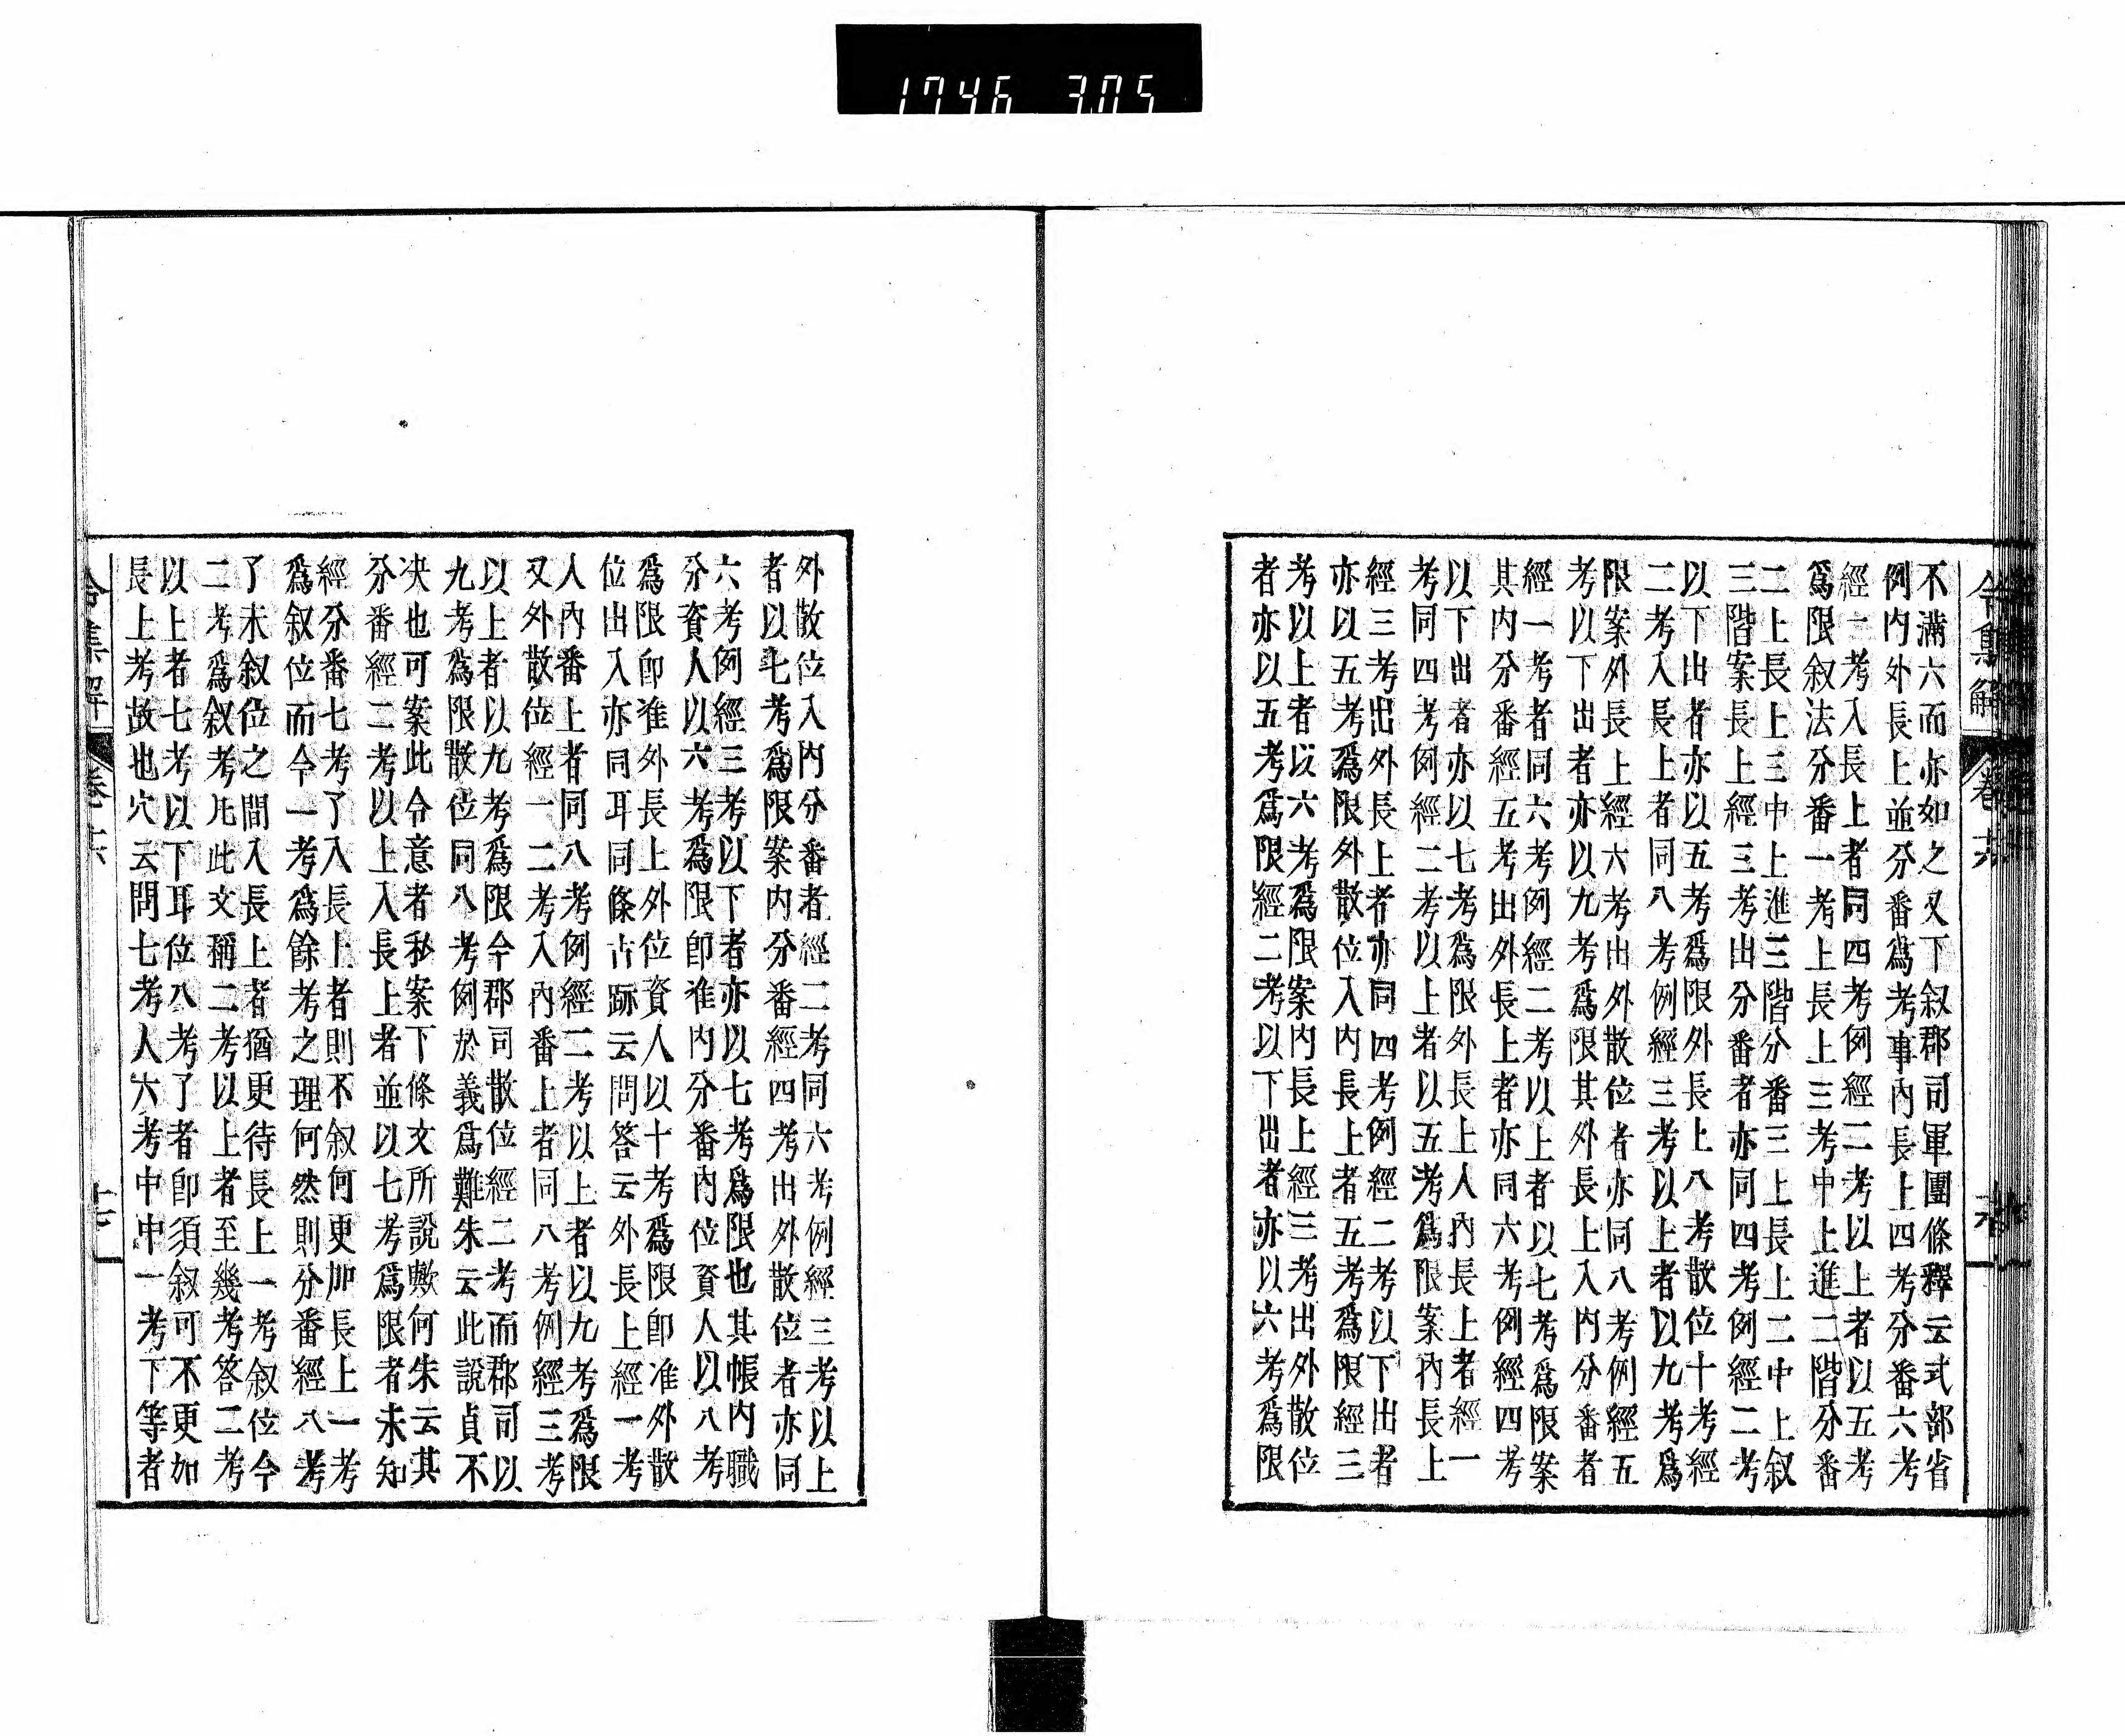 1746 305
令集解 卷六
不滿六而亦如之又下叙郡司軍團條釋云式部省
例內外長上並分番爲考事內長上四考分番六考
經二考入長上者同四考例經二考以上者以五考
爲限叙法分番一考上長上三考中上進二階分番
二上長上三中上進三階分番三上長上二中上叙
三階案長上經三考出分番者亦同四考例經二考
以下出者亦以五考爲限外長上八考散位十考經
二考入長上者同八考例經三考以上者以九考爲
限案外長上經六考出外散位者亦同八考例經五
考以下出者亦以九考爲限其外長上入內分番者
經一考者同六考例經二考以上者以七考爲限案
其內分番經五考出外長上者亦同六考例經四考
以下出者亦以七考爲限外長上人內長上者經一
考同四考例經二考以上者以五考爲限案內長上
經三考出外長上者亦同四考例經二考以下出者
亦以五考爲限外散位入內長上者五考爲限經三
考以上者以六考爲限案內長上經三考出外散位
者亦以五考爲限經二考以下出者亦以六考爲限
外散位入內分番者經二考同六考例經三考以上
者以七考爲限案內分番經四考出外散位者亦同
六考例經三考以下者亦以七考爲限也其帳內職
分資人以六考爲限卽准內分番內位資人以八考
爲限卽准外長上外位資人以十考爲限卽准外散
位出入亦同耳同條古跡云問答云外長上經一考
人內番上者同八考例經二考以上者以九考爲限
又外散位經一二考入內番上者同八考例經三考
以上者以九考爲限今郡司散位經二考而郡司以
九考爲限散位同八考例於義爲難朱云此說貞不
决也可案此令意者私案下條文所說歟何朱云其
分番經二考以上入長上者並以七考爲限者未知
經分番七考了入長上者則不叙何更加長上一考
爲叙位而今一考爲餘考之理何然則分番經八考
了未叙位之間入長上者猶更待長上一考叙位今
二考爲叙考凡此文稱二考以上者至幾考答二考
以上者七考以下耳位八考了者卽須叙可不更加
長上考故也穴云問七考人六考中中一考下等者
令集解 卷六 十七